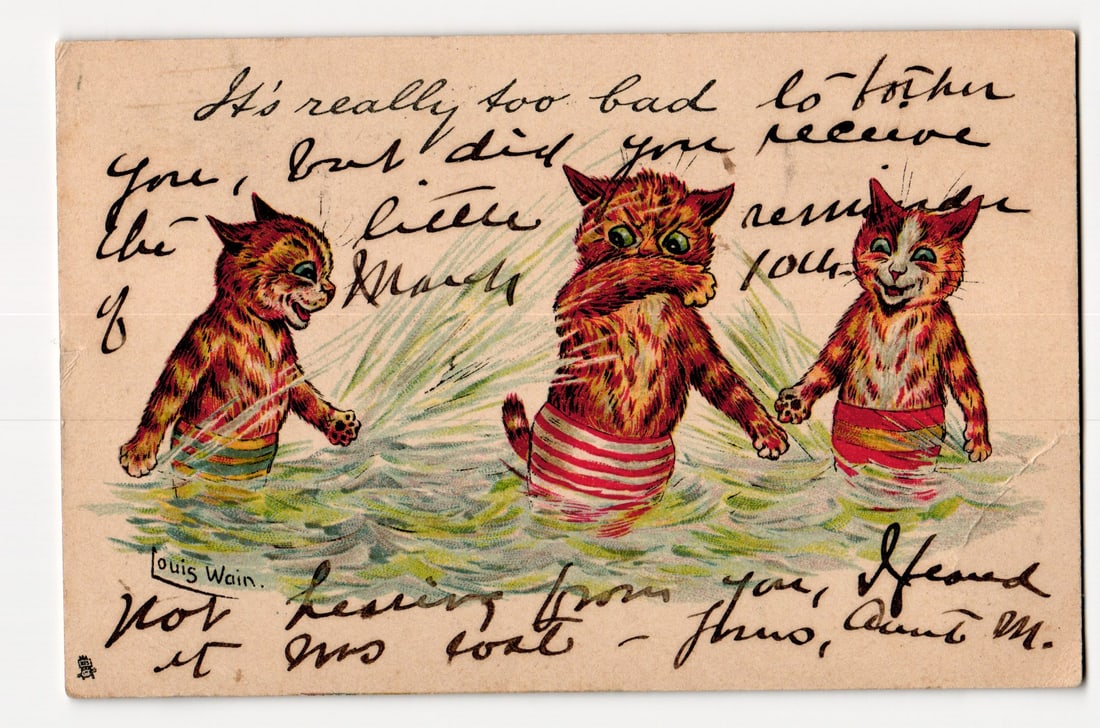 It's really too bad to bother
you, but did you receive
the little reminder
of March 10th.
Louis Wain.
Not hearing from you, I feared
it was lost - Yours, Aunt M.